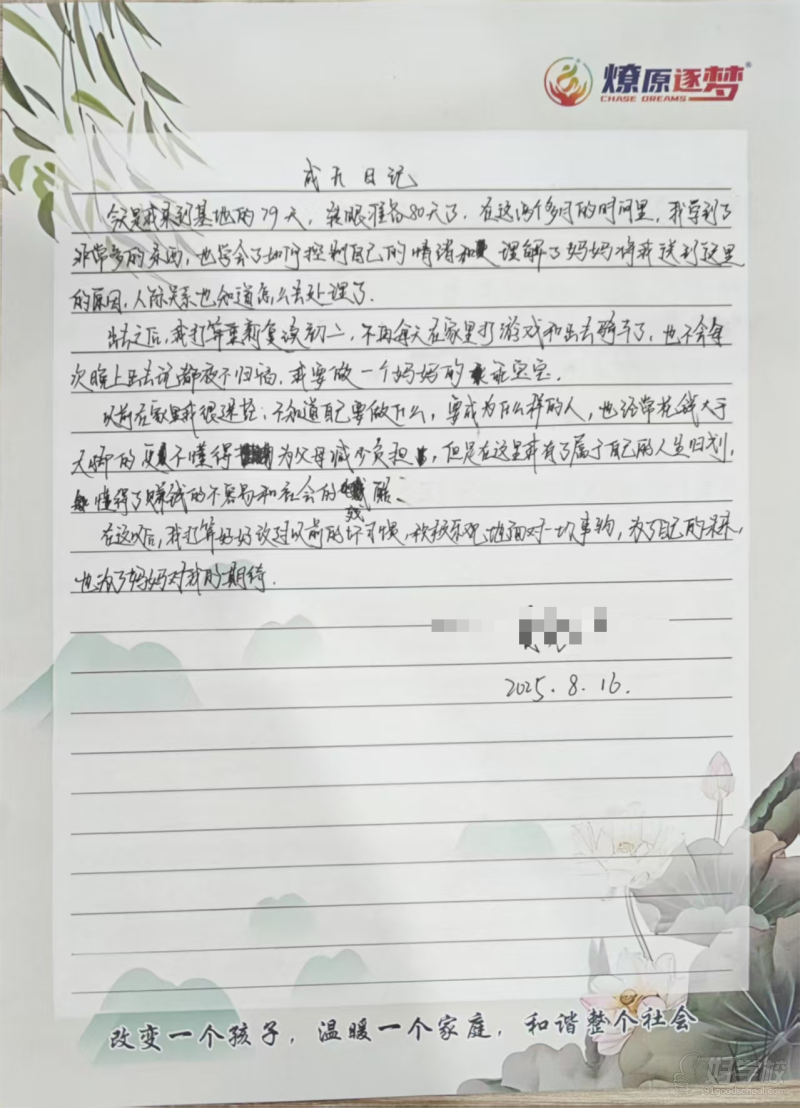 燎原逐梦
CHASE DREAMS
成长日记
今天是我来到基地的79天，转眼准备80天了，在这两个多月的时间里，我学到了
非常多的东西，也学会了如何控制自己的情绪和理解了妈妈将我送到这里
的原因，人际关系也知道怎么去处理了.
出去之后，我打算重新复读初二，不再每天在家里打游戏和出去骑车了，也不会每
次晚上出去玩都夜不归宿，我要做一个妈妈的乖宝宝.
以前在家里我很迷茫，不知道自己要做什么，要成为什么样的人，也经常花钱大手
大脚的不懂得为父母减少负担，但是在这里我有了属于自己的人生归划，
懂得了赚钱的不容易和社会的残酷.
在这以后，我打算好好改过以前的坏习惯，积极乐观地面对一切事物，为了自己的未来，
也为了妈妈对我的期待.
2025.8.16.
改变一个孩子，温暖一个家庭，和谐整个社会